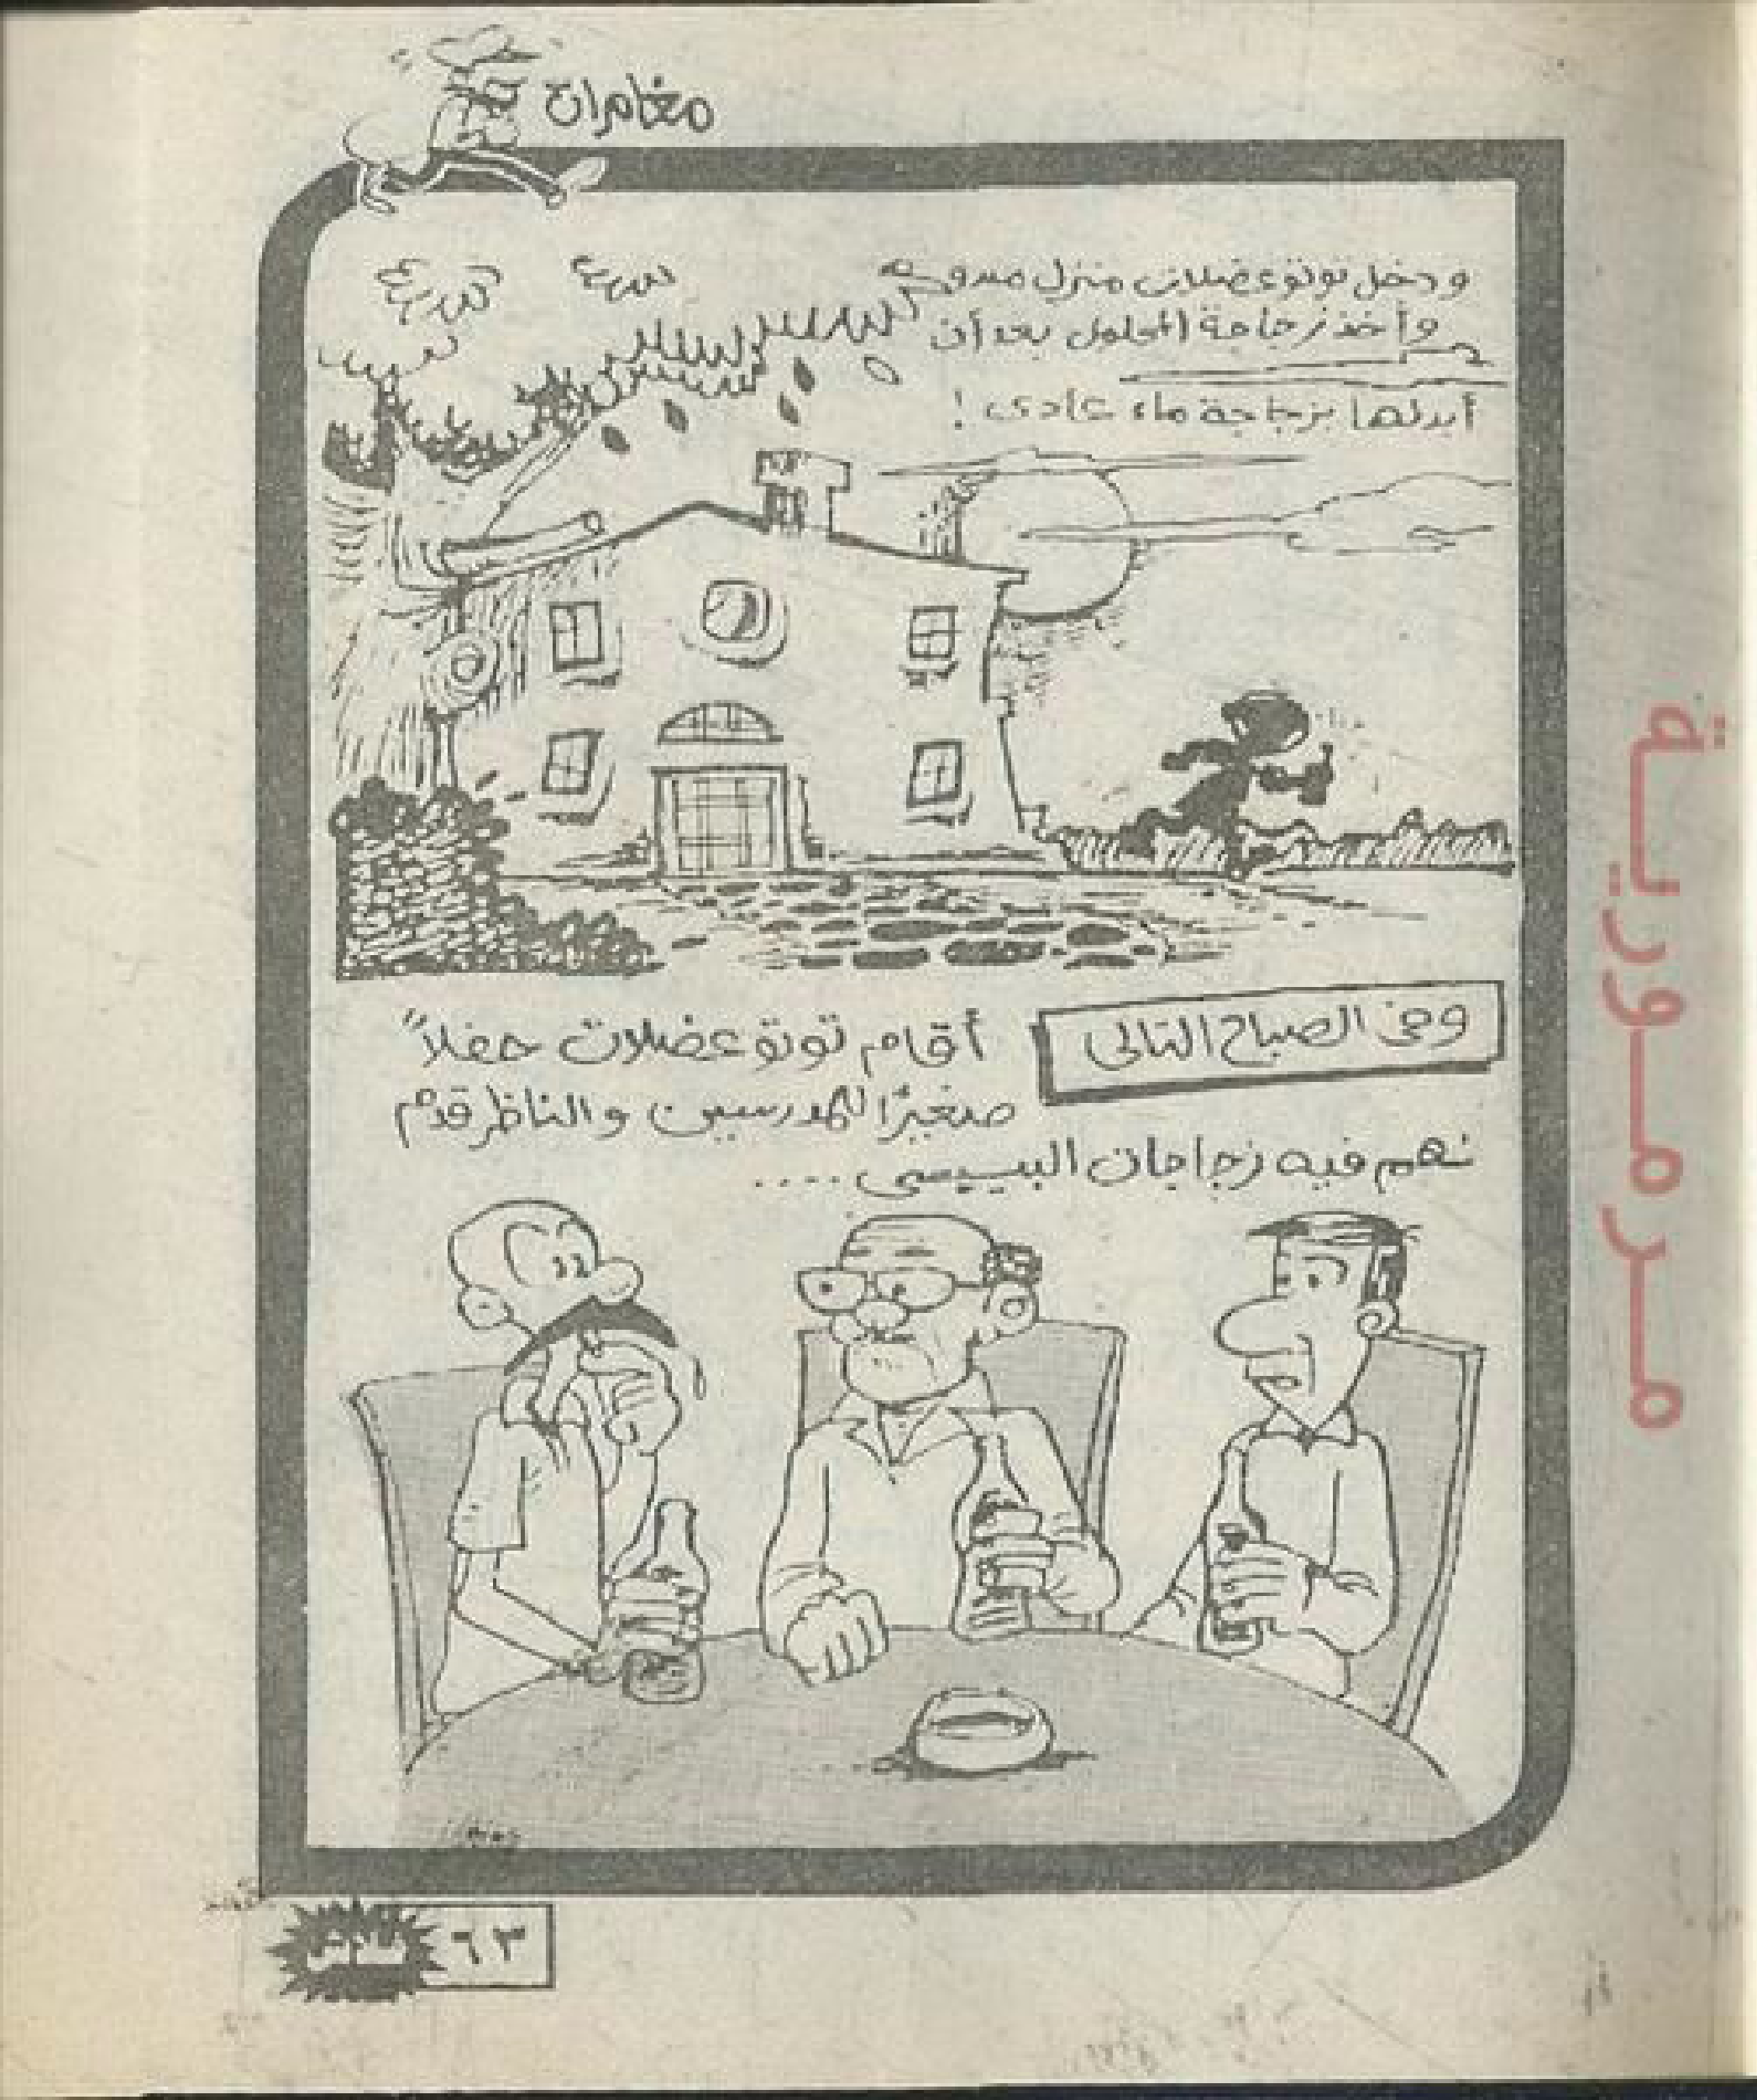 مغامرات
ودخل توتو عضلات منزل مسوكه
وأخذ زجاجة المحلول بعد أن
أبدلها بزجاجة ماء عادى !
وفى الصباح التالى
أقام توتو عضلات حفلاً
صغيرًا للمدرسين والناظر قدم
لهم فيه زجاجات البيبسى ....
٦٣
مرمورية